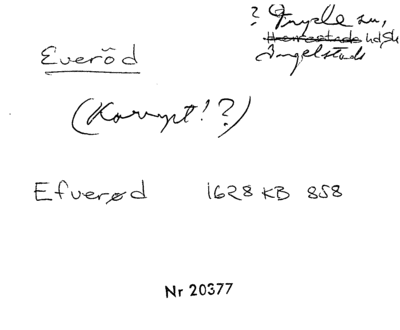 ? Tryde sn,
Herrestads hd, Sk
Ingelstads
Everöd
(Korrupt!?)
Efverød 1628 KB 858
Nr 20377